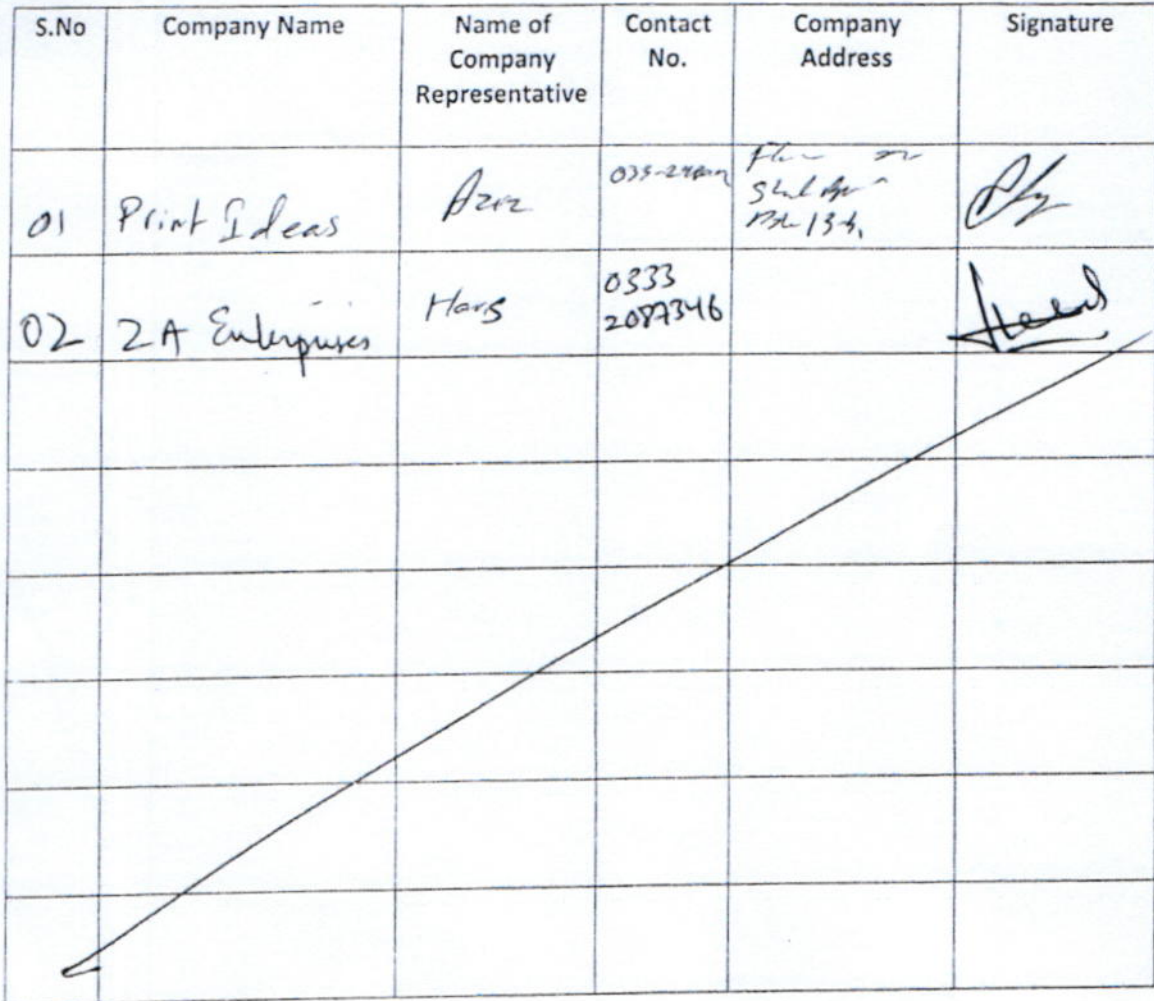 S.No Company Name Name of Company Representative Contact No. Company Address Signature
01 Print Ideas Aziz
02 2A Enterprises Haris 0333 2087346